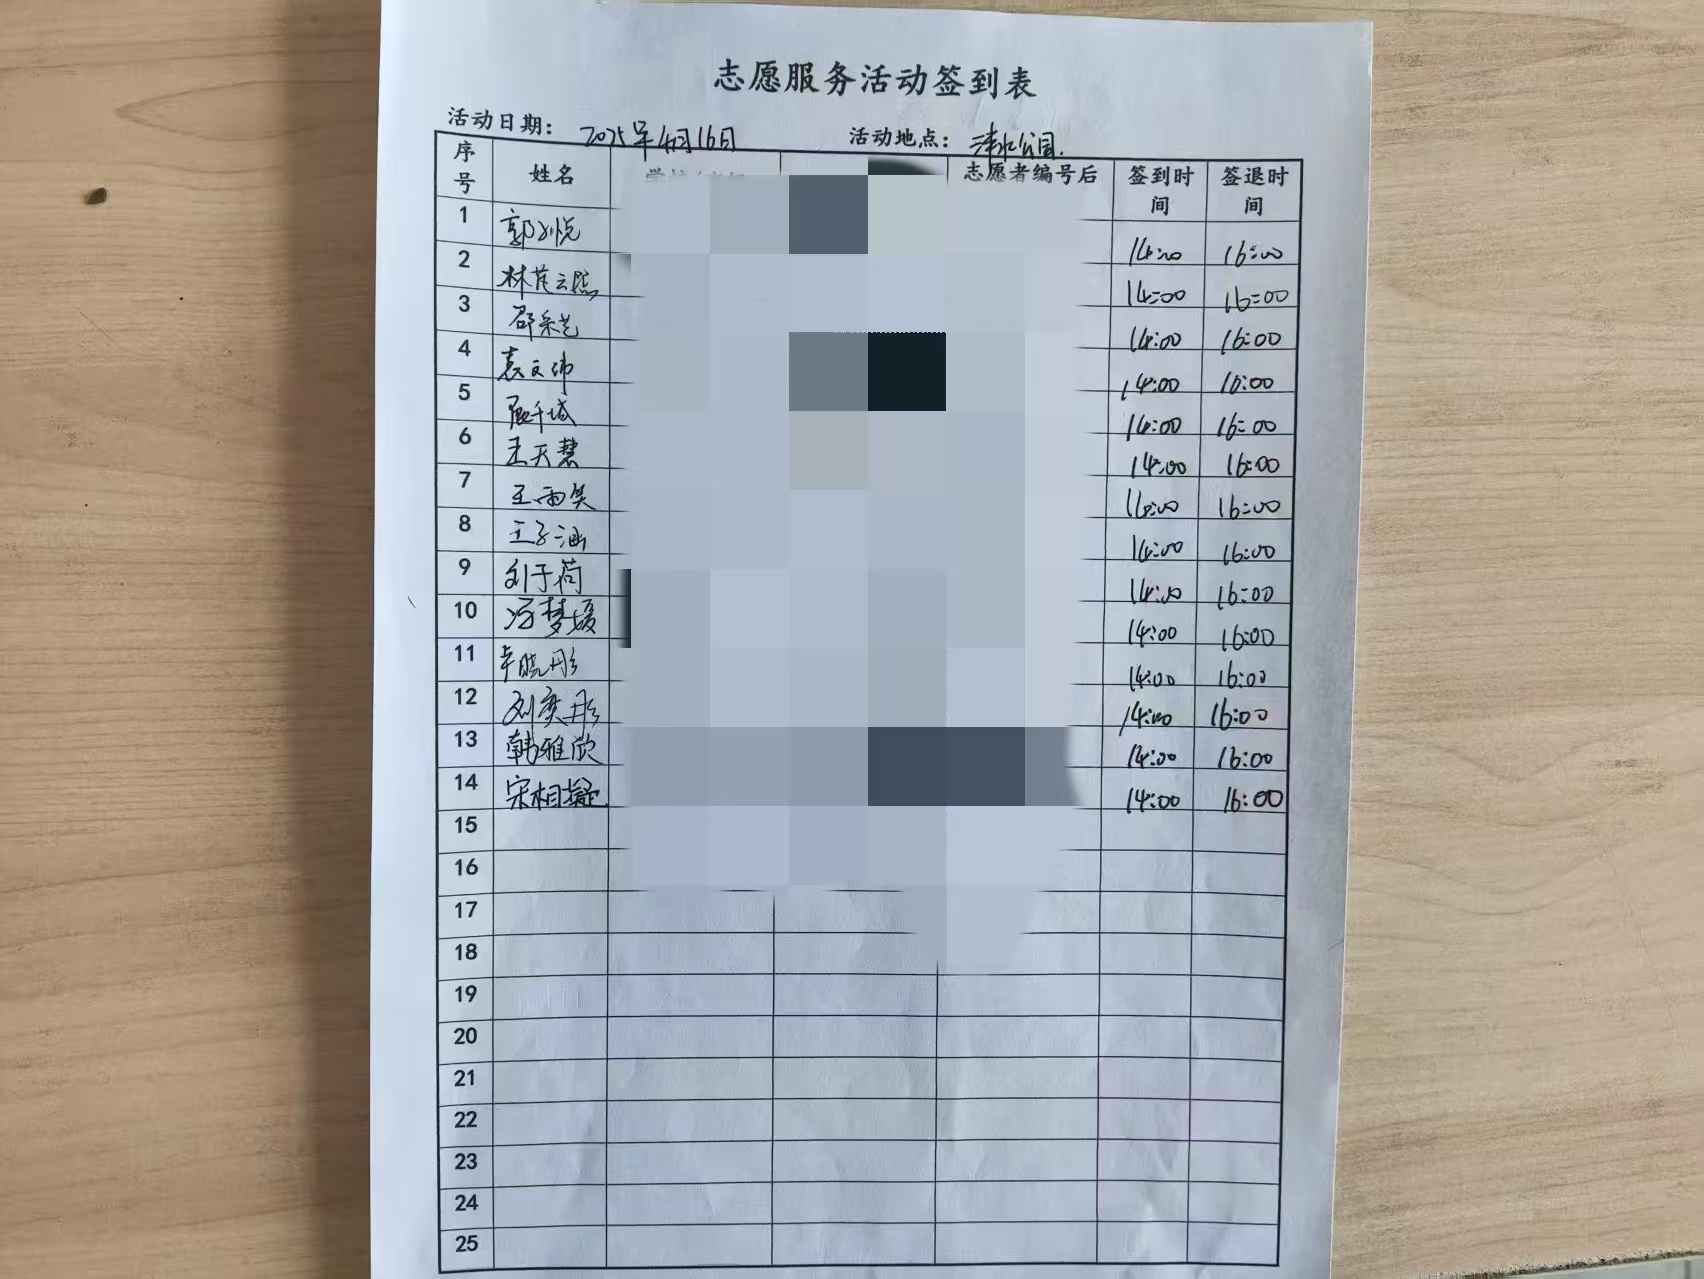 志愿服务活动签到表
活动日期： 2025年4月16日 活动地点： 清水公园
序号 姓名 志愿者编号后 签到时间 签退时间
1 郭 悦 14:00 16:00
2 林范云熙 14:00 16:00
3 邵采艺 14:00 16:00
4 袁文 14:00 16:00
5 千 14:00 16:00
6 王天慧 14:00 16:00
7 王雨笑 14:00 16:00
8 王子涵 14:00 16:00
9 刘于荷 14:00 16:00
10 冯梦媛 14:00 16:00
11 晓彤 14:00 16:00
12 刘奕彤 14:00 16:00
13 韩雅欣 14:00 16:00
14 宋相凝 14:00 16:00
15
16
17
18
19
20
21
22
23
24
25